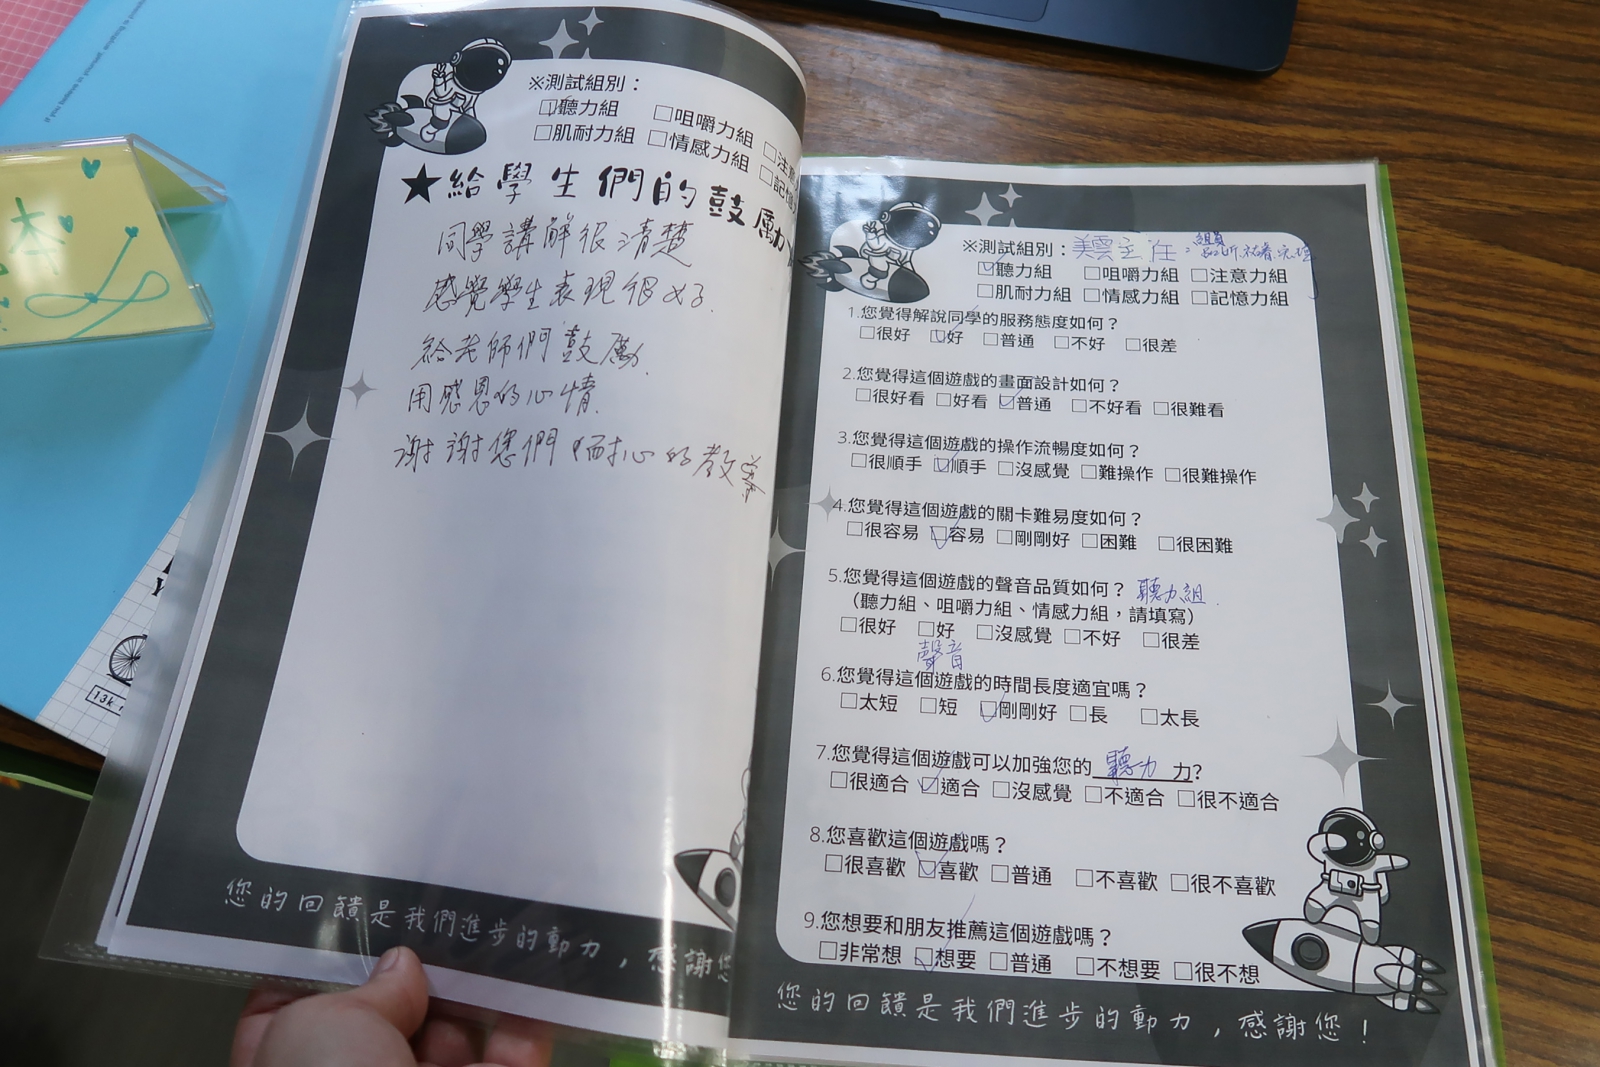 ※測試組別：
☑聽力組 □咀嚼力組 □注
□肌耐力組 □情感力組 □記憶
★給學生們的鼓勵
同學講解很清楚
感覺學生表現很好.
給老師們鼓勵.
用感恩的心情.
謝謝您們 耐心的教導
您的回饋是我們進步的動力，感謝您
※測試組別：美雲主任
組員
☑聽力組 □咀嚼力組 □注意力組
□肌耐力組 □情感力組 □記憶力組
1.您覺得解說同學的服務態度如何？
□很好 ☑好 □普通 □不好 □很差
2.您覺得這個遊戲的畫面設計如何？
□很好看 □好看 ☑普通 □不好看 □很難看
3.您覺得這個遊戲的操作流暢度如何？
□很順手 ☑順手 □沒感覺 □難操作 □很難操作
4.您覺得這個遊戲的關卡難易度如何？
□很容易 ☑容易 □剛剛好 □困難 □很困難
5.您覺得這個遊戲的聲音品質如何？ 聽力組.
（聽力組、咀嚼力組、情感力組，請填寫）
□很好 □好 □沒感覺 □不好 □很差
聲音
6.您覺得這個遊戲的時間長度適宜嗎？
□太短 □短 ☑剛剛好 □長 □太長
7.您覺得這個遊戲可以加強您的 聽力 力?
□很適合 ☑適合 □沒感覺 □不適合 □很不適合
8.您喜歡這個遊戲嗎？
□很喜歡 ☑喜歡 □普通 □不喜歡 □很不喜歡
9.您想要和朋友推薦這個遊戲嗎？
□非常想 ☑想要 □普通 □不想要 □很不想
您的回饋是我們進步的動力，感謝您！
本